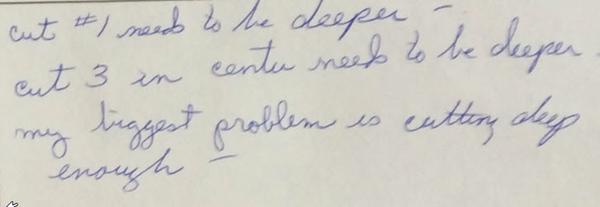 cut #1 needs to be deeper –
cut 3 in center needs to be deeper.
my biggest problem is cutting deep
enough –